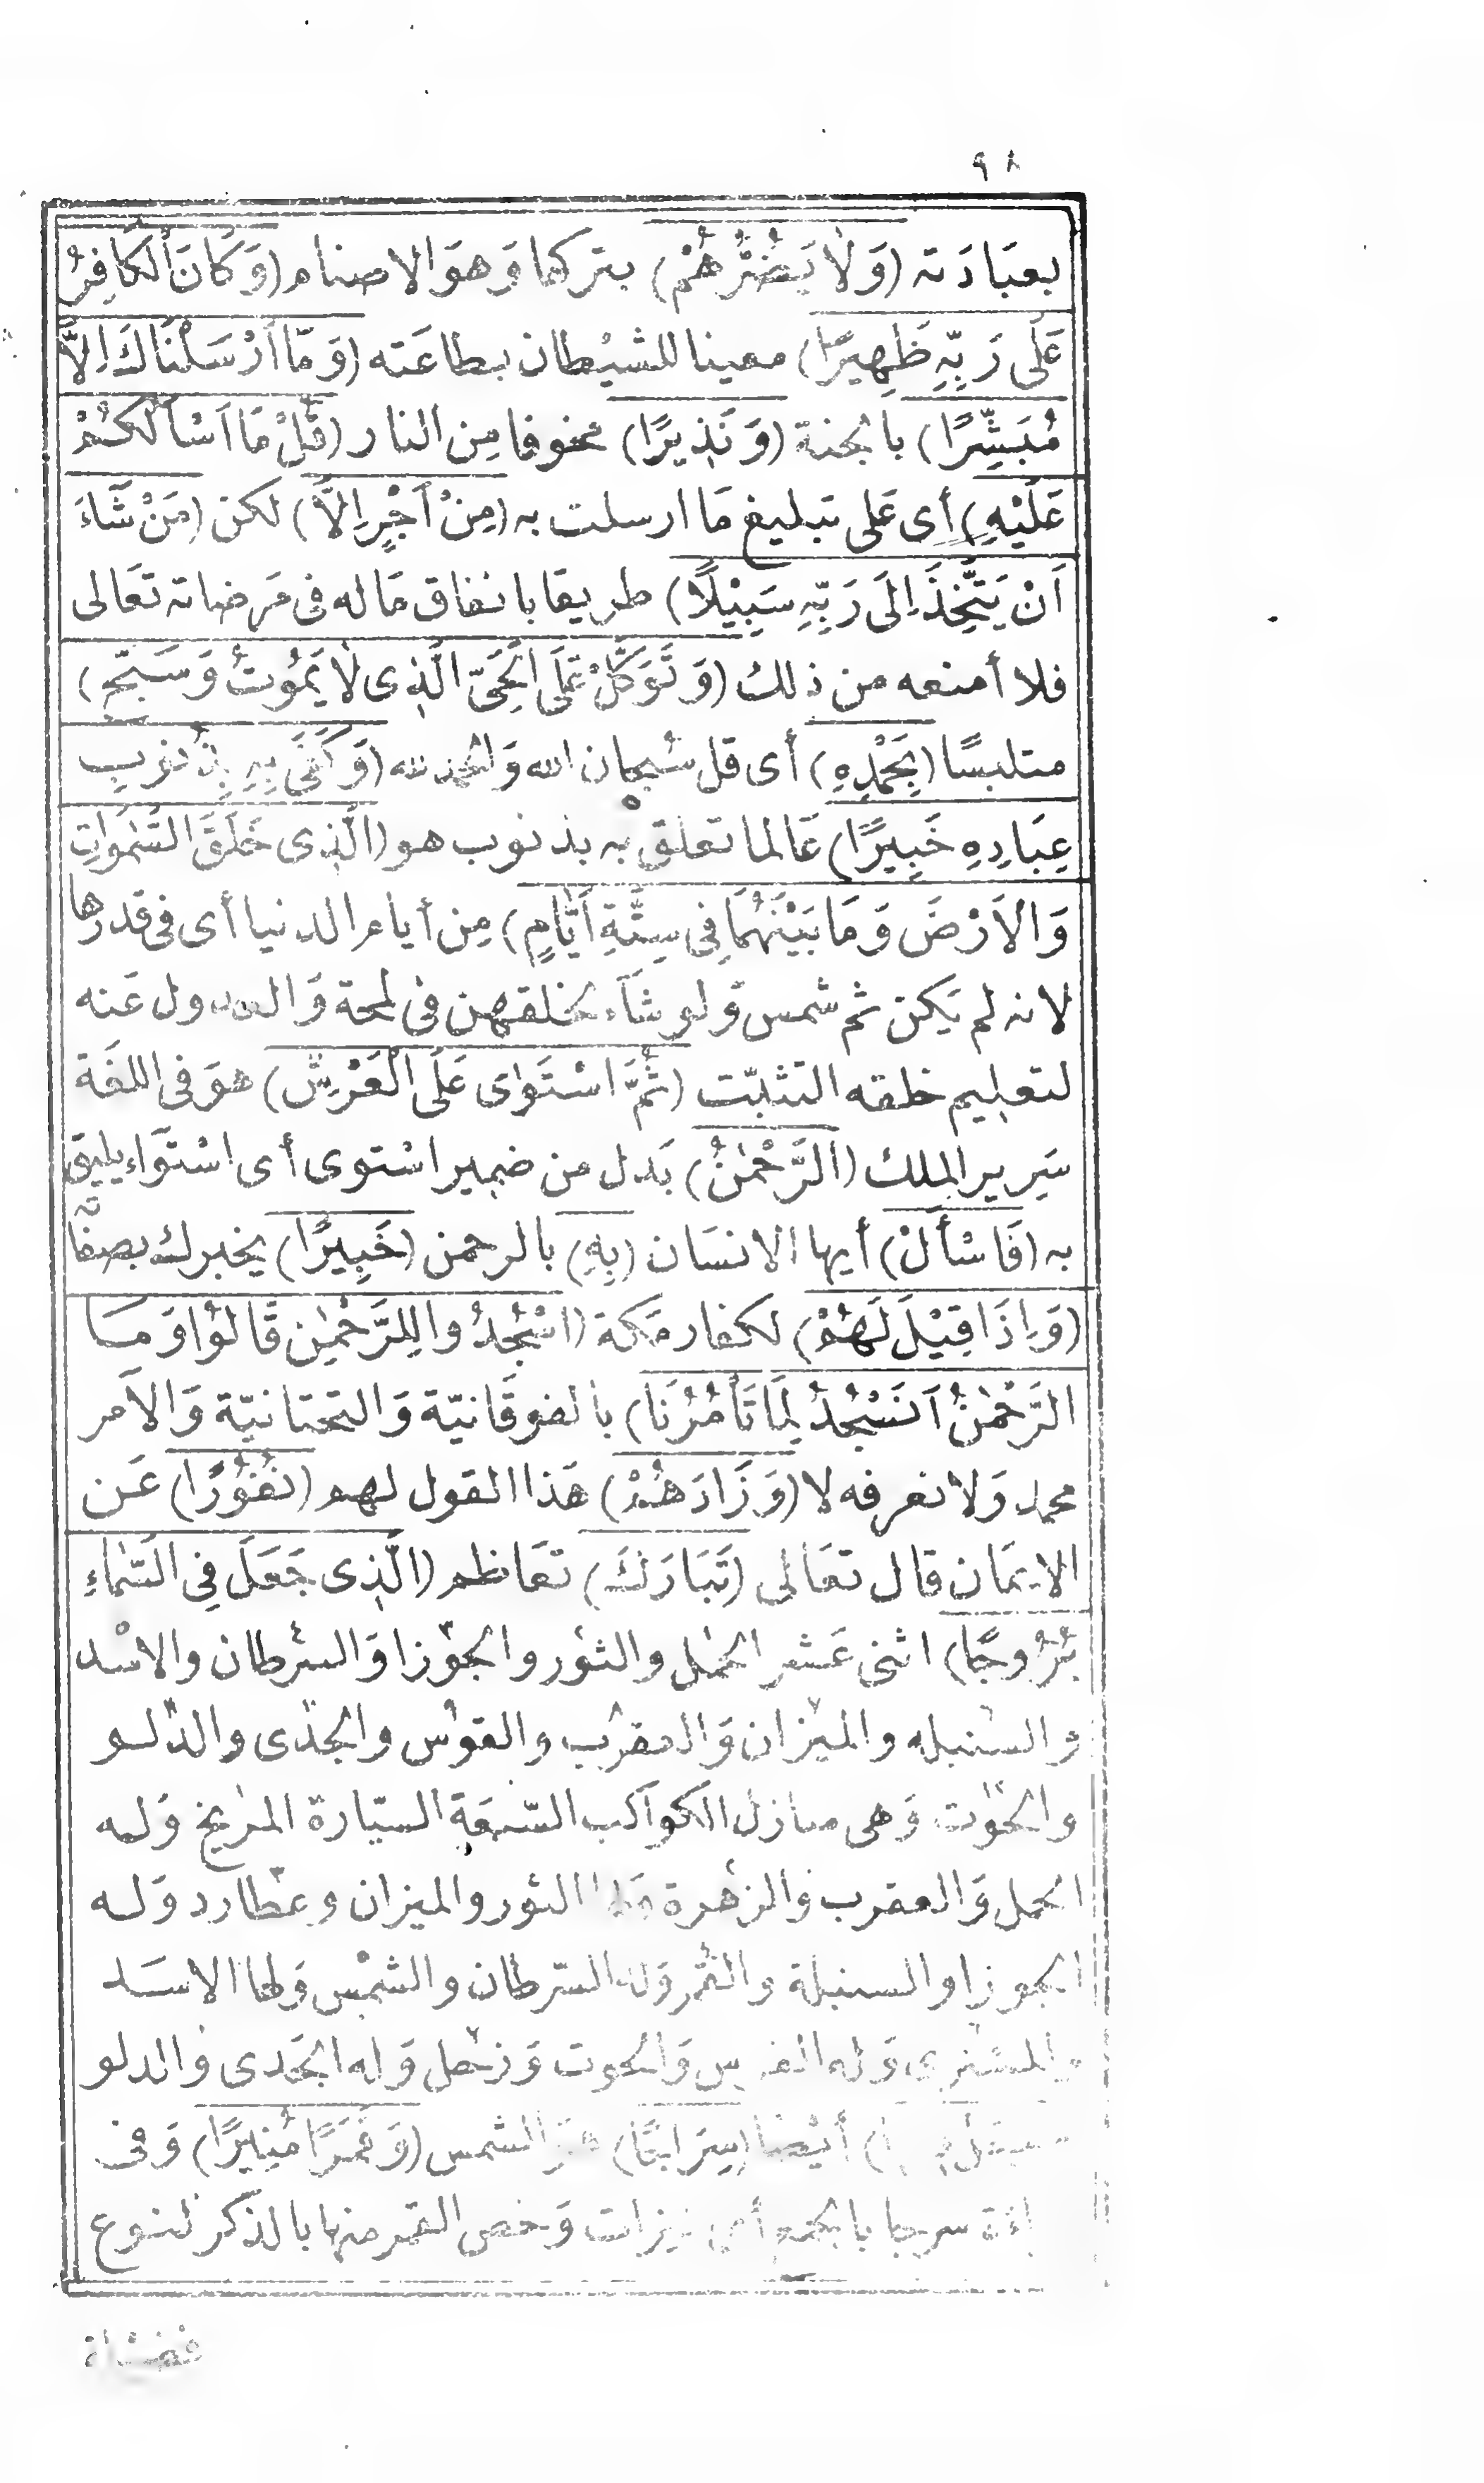 ٩٨
بعبَادَته (وَلَا يَضُرُّهُمْ) بتركها وَهوَ الاصنام (وَكَانَ الْكَافِرُ
عَلَى رَبِّهِ ظَهِيرًا) معينا للشيْطان بطاعَته (وَمَّا اَرْسَلْنَاكَ اِلَّا
مُبَشِّرًا) بالجنة (وَنَذِيرًا) مخوفا مِن النار (قُلْ مَّا اَسْأَلُكُمْ
عَلَيْهِ) أى عَلى تبليغ مَا ارسلت به (مِنْ اَجْرٍ اِلَّا) لكن (مَنْ شَّاءَ
اَنْ يَتَّخِذَ اِلَى رَبِّهِ سَبِيْلًا) طريقا بانفاق مَاله فى مَرضاته تعَالى
فلا أمنعه من ذلك (وَتَوَكَّلْ عَلَى الْحَىِّ الَّذِى لَا يَمُوتُ وَسَبِّحْ)
متلبسًا (بِحَمْدِهِ) أى قل سُبحان الله وَالحمد لله (وَكَفَى بِهِ بِذُنُوبِ
عِبَادِهِ خَبِيرًا) عَالما تعلق به بذنوب هو (الَّذِى خَلَقَ السَّمٰوَاتِ
وَالْاَرْضَ وَمَا بَيْنَهُمَا فِى سِتَّةِ اَيَّامٍ) مِن أيام الدنيا أى فى قدرها
لانه لم يَكن ثم شمس وَلو شَآء لخلقهن فى لمحة وَالعدول عَنه
لتعليم خلقه التثبّت (ثُمَّ اسْتَوٰى عَلَى الْعَرْشِ) هوَ فى اللغَة
سَرير الملك (الرَّحْمٰنُ) بَدل من ضمير اسْتوى أى اسْتوَاء يليق
به (فَاسْأَلْ) أيها الانسَان (بِهِ) بالرحمن (خَبِيرًا) يخبرك بصفاته
(وَاِذَا قِيْلَ لَهُمْ) لكفار مَكة (اسْجُدُوا لِلرَّحْمٰنِ قَالُوْا وَمَا
الرَّحْمٰنُ اَنَسْجُدُ لِمَا تَأْمُرُنَا) بالفوقَانيّة وَالتحتانيّة وَالاَمر
محمد وَلا نعرفه لا (وَزَادَهُمْ) هَذا القول لهم (نُفُوْرًا) عَن
الايمَان قال تعَالى (تَبَارَكَ) تعَاظم (الَّذِى جَعَلَ فِى السَّمَاءِ
بُرُوجًا) اثنى عَشر الحمل والثوْر والجوْزا وَالسرطان والاسْد
والسنبله والميْزان وَالعقرب والقوْس والجدْى والدّلو
والحوْت وَهى منازل الكواكب السّبعَة السيّارة المريخ وَله
الحمل وَالعقرب والزهرة وَلها الثور والميزان وعطارد وَله
الجوزا والسنبلة والقمر وَله السّرطان والشمْس وَلها الاسَد
والمشترى وَله القوس وَالحوت وَزحل وَله الجَدى والدلو
أيْضا (سِرَاجًا) هوَ الشمس (وَقَمَرًا مُنِيْرًا) وَفى
سرجا بالجمع أى نيرات وَخص القمر منها بالذكر لنوع
فضيلة